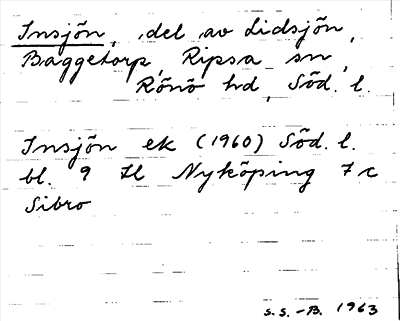 Insjön, del av Lidsjön,
Baggetorp, Ripsa sn,
Rönö hd, Söd. l.
Insjön ek (1960) Söd. l.
bl. 9 H Nyköping 7 c
Sibro
S.S.-B. 1963